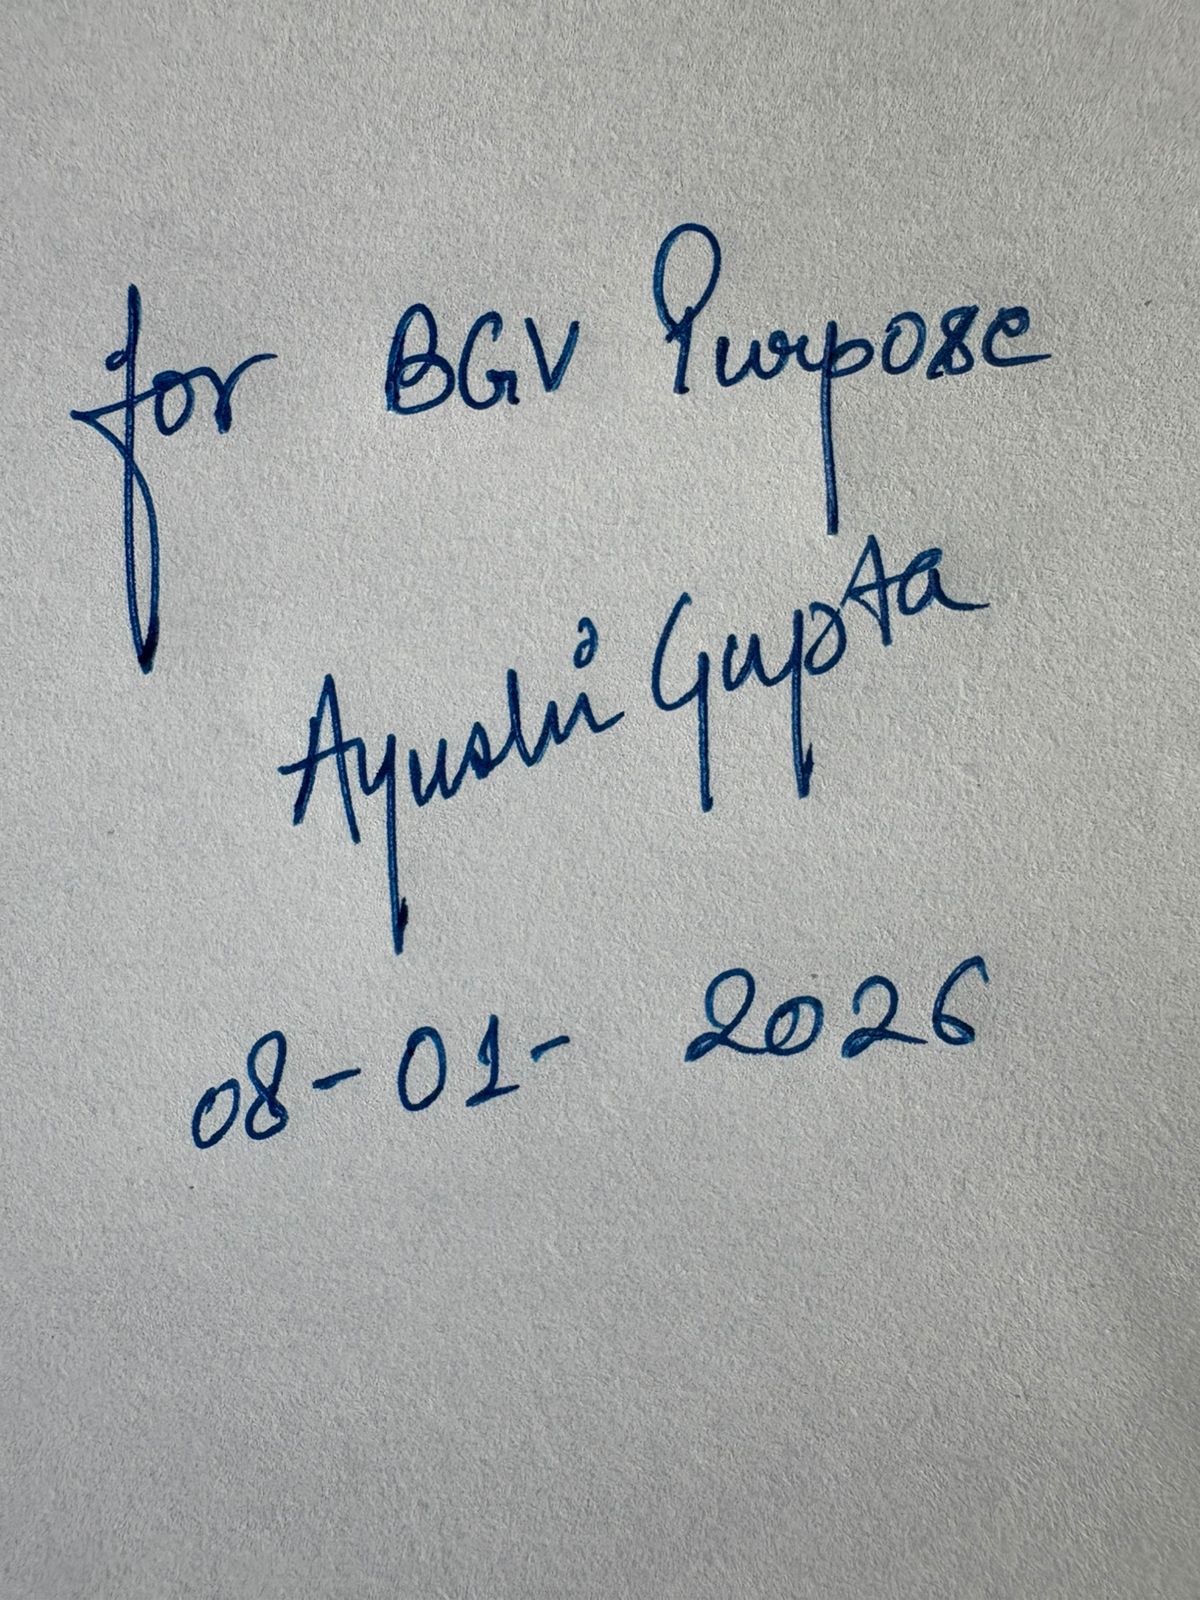 for BGV Purpose
Ayushi Gupta
08-01-2026